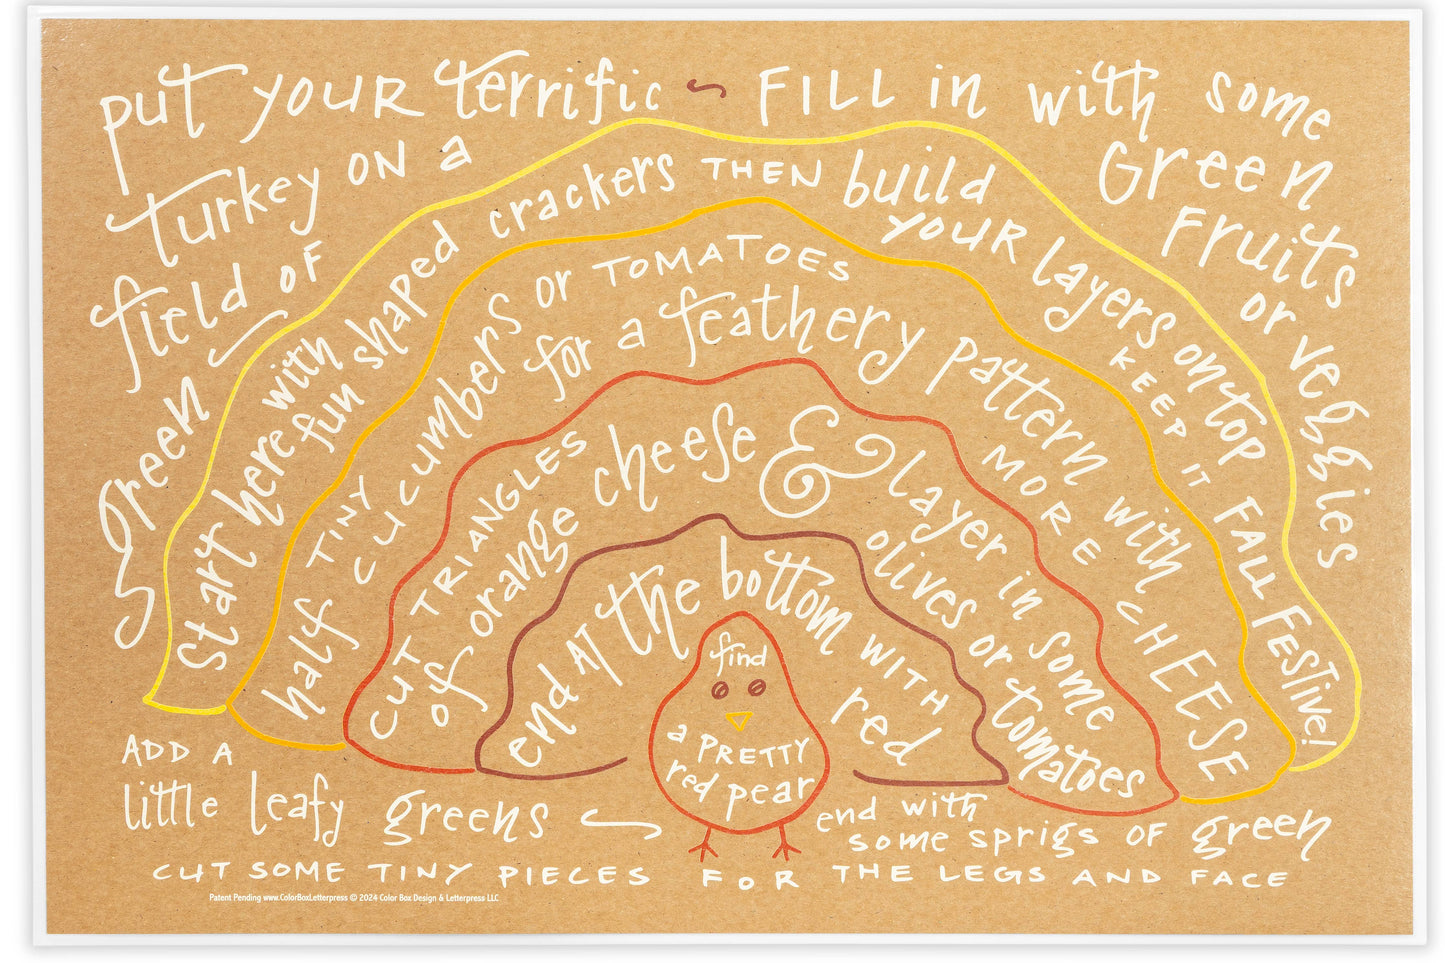 put YOUR terrific ~ FILL in with some
turkey ON a
Green
field OF
Fruits
green
or veggies
Start here with
fun shaped crackers THEN build
YOUR layers on top
KEEP IT FALL FESTIVE!
half TINY
CUCUMBERS or TOMATOES
for a feathery pattern with
MORE CHEESE
CUT TRIANGLES
of orange cheese & layer in some
olives or tomatoes
end AT the bottom WITH
red
find
a PRETTY
red pear
ADD A
little leafy greens ~
end with
some sprigs OF green
CUT SOME TINY PIECES FOR THE LEGS AND FACE
Patent Pending www.ColorBoxLetterpress © 2024 Color Box Design & Letterpress LLC